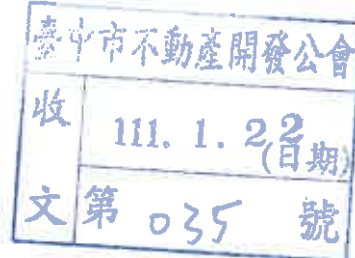 臺中市不動產開發公會
收
111. 1. 22
(日期)
文 第 035 號